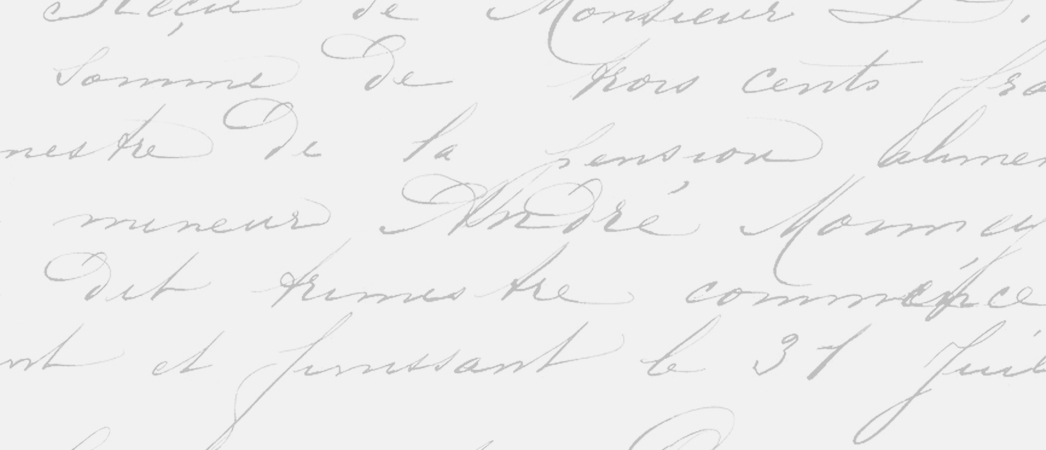 Reçu de Monsieur D.
somme de trois cents fra
mestre de la pension alimen
mineur André Monn
Dit trimestre commence
nt et finissant le 31 Juil